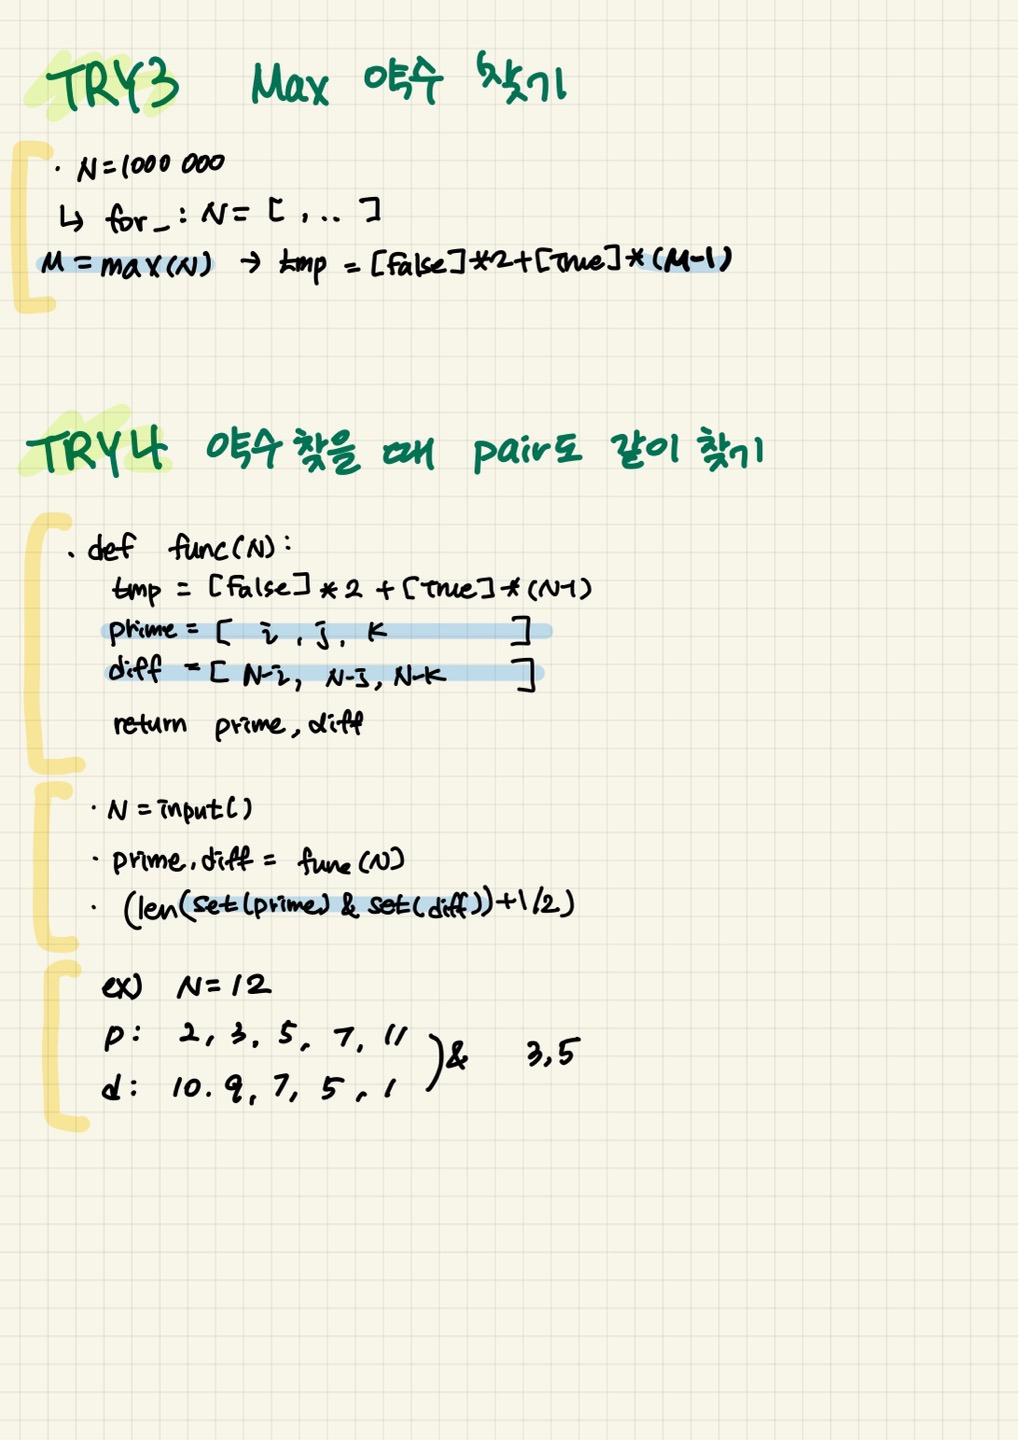 TRY3 Max 약수 찾기
· N=1000 000
↳ for _ : N= [ , .. ]
M = max(N) → tmp = [False]*2+[True]*(M-1)
TRY4 약수 찾을 때 pair도 같이 찾기
· def func(N):
tmp = [False]*2 + [True]*(N-1)
prime = [ i , j , k ]
diff = [ N-i, N-j, N-k ]
return prime, diff
· N = input()
· prime, diff = func(N)
· (len(set(prime) & set(diff))+1/2)
ex) N=12
p: 2, 3, 5, 7, 11
d: 10. 9, 7, 5, 1
)& 3,5